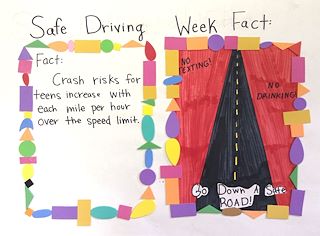 Safe Driving Week Fact:
Fact:
Crash risks for
teens increase with
each mile per hour
over the speed limit.
NO
TEXTING!
NO
DRINKING!
Go Down A Safe
ROAD!